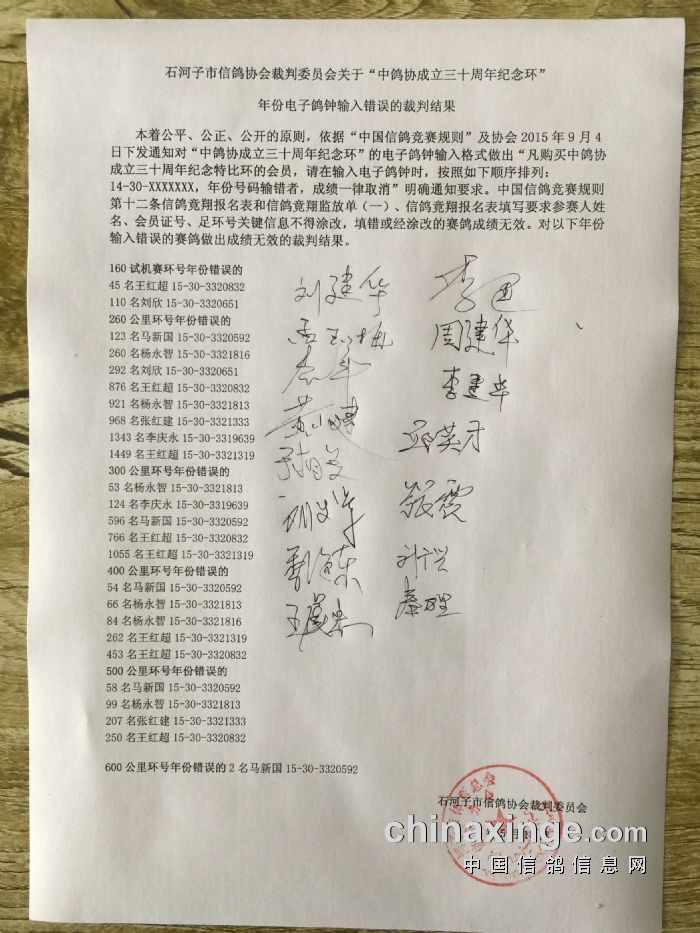 石河子市信鸽协会裁判委员会关于“中鸽协成立三十周年纪念环”
年份电子鸽钟输入错误的裁判结果
本着公平、公正、公开的原则，依据“中国信鸽竞赛规则”及协会2015年9月4
日下发通知对“中鸽协成立三十周年纪念环”的电子鸽钟输入格式做出“凡购买中鸽协
成立三十周年纪念特比环的会员，请在输入电子鸽钟时，按照如下顺序排列：
14-30-XXXXXXX，年份号码输错者，成绩一律取消”明确通知要求。中国信鸽竞赛规则
第十二条信鸽竞翔报名表和信鸽竞翔监放单（一）、信鸽竞翔报名表填写要求参赛人姓
名、会员证号、足环号关键信息不得涂改，填错或经涂改的赛鸽成绩无效。对以下年份
输入错误的赛鸽做出成绩无效的裁判结果。
160 试机赛环号年份错误的
45 名王红超 15-30-3320832
110 名刘欣 15-30-3320651
260 公里环号年份错误的
123 名马新国 15-30-3320592
260 名杨永智 15-30-3321816
292 名刘欣 15-30-3320651
876 名王红超 15-30-3320832
921 名杨永智 15-30-3321813
968 名张红建 15-30-3321333
1343 名李庆永 15-30-3319639
1449 名王红超 15-30-3321319
300 公里环号年份错误的
53 名杨永智 15-30-3321813
124 名李庆永 15-30-3319639
596 名马新国 15-30-3320592
766 名王红超 15-30-3320832
1055 名王红超 15-30-3321319
400 公里环号年份错误的
54 名马新国 15-30-3320592
66 名杨永智 15-30-3321813
84 名杨永智 15-30-3321816
262 名王红超 15-30-3321319
453 名王红超 15-30-3320832
500 公里环号年份错误的
58 名马新国 15-30-3320592
99 名杨永智 15-30-3321813
207 名张红建 15-30-3321333
250 名王红超 15-30-3320832
600 公里环号年份错误的 2 名马新国 15-30-3320592
刘建华
周建华
李建华
邱英才
张震
石河子市信鸽协会裁判委员会
chinaxinge.com
中国信鸽信息网